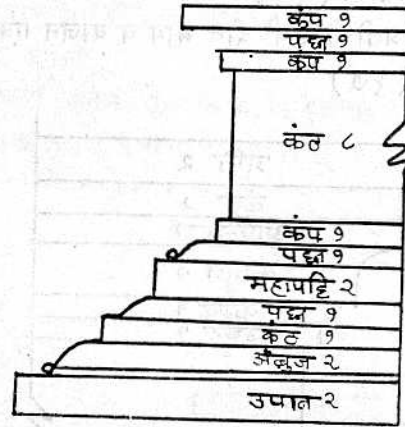 कंप १
पद्म १
कंप १
कंठ ८
कंप १
पद्म १
महापट्टि २
पद्म १
कंठ १
अंबुज २
उपान २